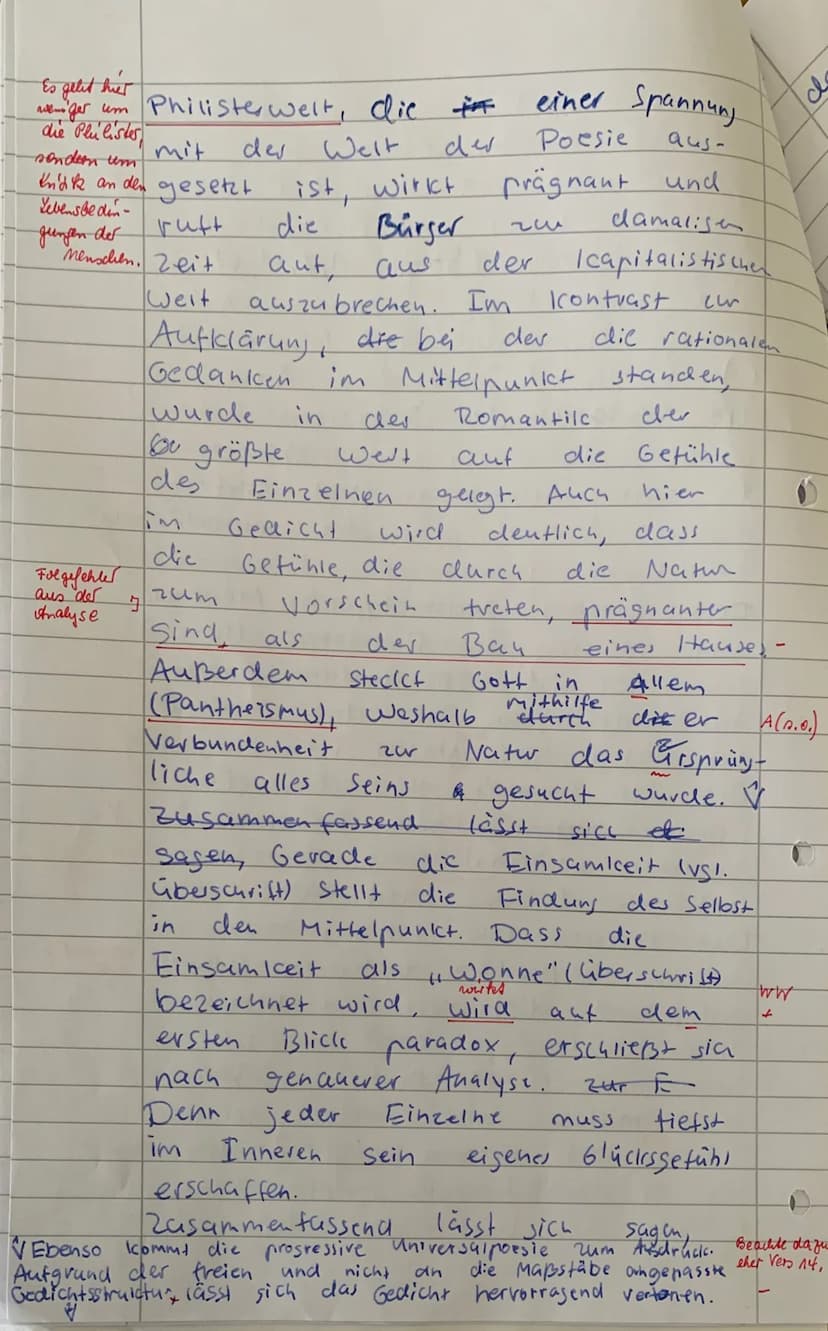 Es geht hier
weniger um
die Philister,
sondern um
Kritik an den
Lebensbedin-
gungen der
Menschen.
Philisterwelt, die in einer Spannung
mit der Welt der Poesie aus-
gesetzt ist, wirkt prägnant und
ruft die Bürger zur damaligen
Zeit auf, aus der kapitalistischen
Welt auszubrechen. Im Kontrast zur
Aufklärung, die bei der die rationalen
Gedanken im Mittelpunkt standen,
wurde in der Romantik der
größte Wert auf die Gefühle
des Einzelnen gelegt. Auch hier
im Gedicht wird deutlich, dass
die Gefühle, die durch die Natur
Folgefehler
aus der
Analyse
zum Vorschein treten, prägnanter
sind, als der Bau eines Hauses. -
Außerdem steckt Gott in Allem
(Pantheismus), weshalb durch mithilfe die er A (s.o.)
Verbundenheit zur Natur das Ursprüng-
liche alles Seins gesucht wurde. ∀
Zusammenfassend lässt sich
sagen, Gerade die Einsamkeit (vgl.
Überschrift) stellt die Findung des Selbst
in den Mittelpunkt. Dass die
Einsamkeit als „Wonne" (Überschrift)
bezeichnet wird, wird auf dem WW
ersten Blick paradox, erschließt sich
nach genauerer Analyse. Zur E
Denn jeder Einzelne muss tiefst
im Inneren sein eigenes Glücksgefühl
erschaffen.
Zusammenfassend lässt sich sagen,
∀ Ebenso kommt die progressive Universalpoesie zum Ausdruck.
Aufgrund der freien und nicht an die Maßstäbe angepasste
Gedichtsstruktur lässt sich das Gedicht hervorragend vertonen.
Beachte dazu
eher Vers 14,
-